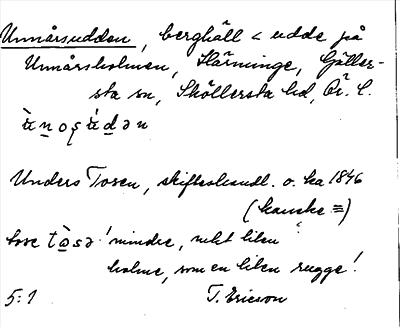 Unnårsudden, berghäll < udde på
Unnårsholmen, Härminge, Gäller-
sta sn, Sköllersta hd, Ör. l.
Unders Tosen, skifteshandl. o. ka 1846
(kanske ≡)
tose tɷ̀sə! mindre, nekt liten
holme, som en liten rugge!
5:1 T. Ericson